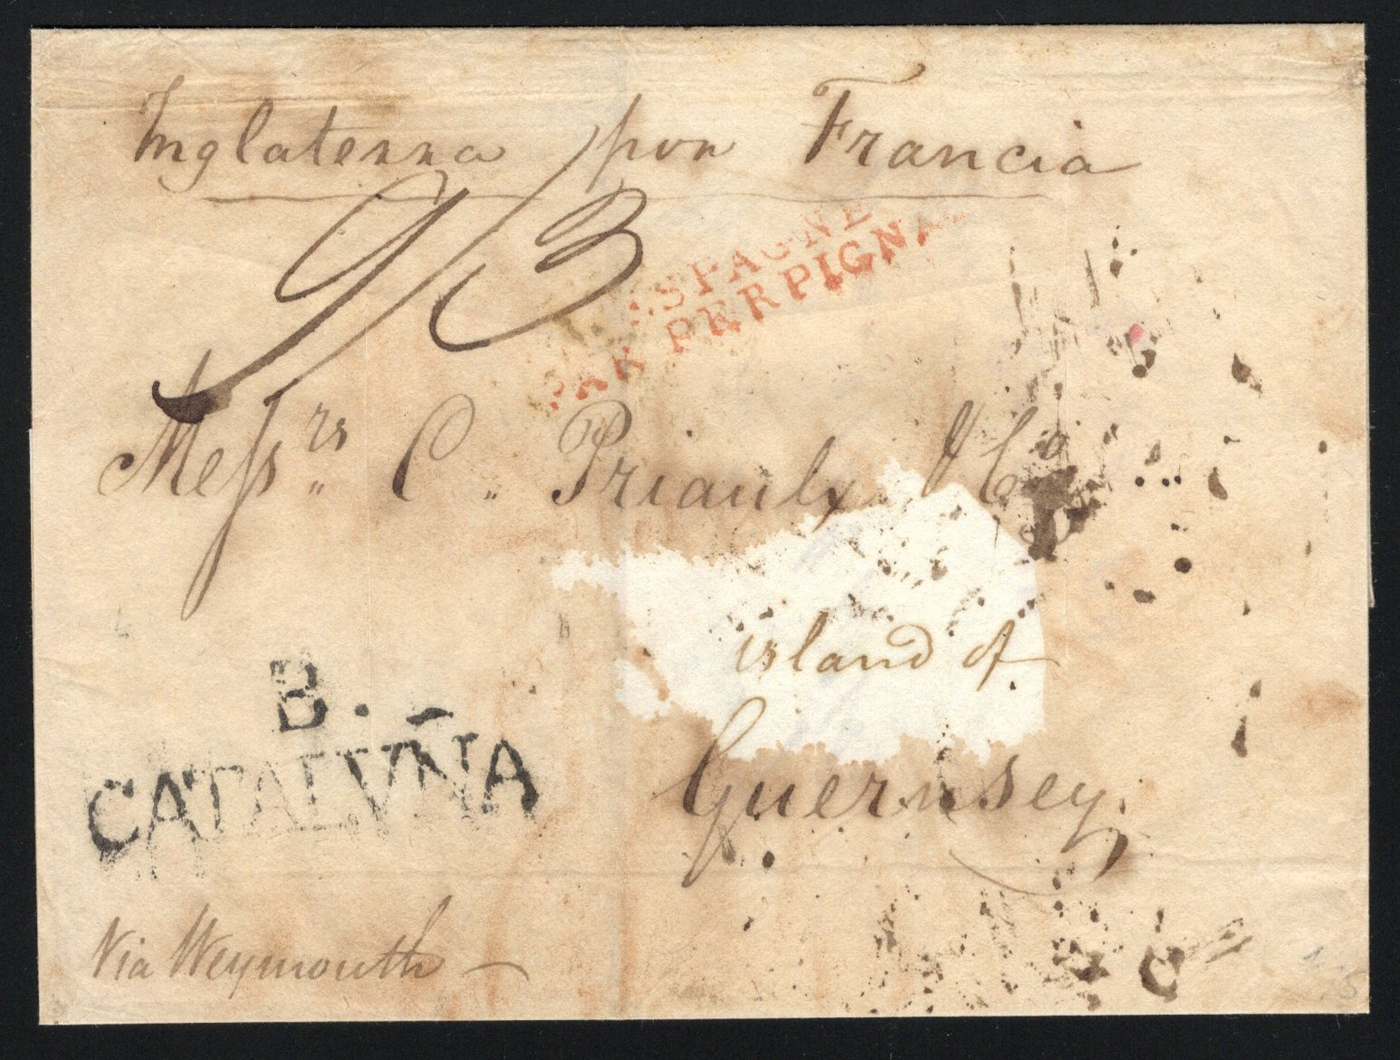 Inglaterra por Francia
2/3
ESPAGNE
PAR PERPIGNA
Messrs. C. Priaulx & Co
island of
Guernsey.
B.
CATALVÑA
Via Weymouth —